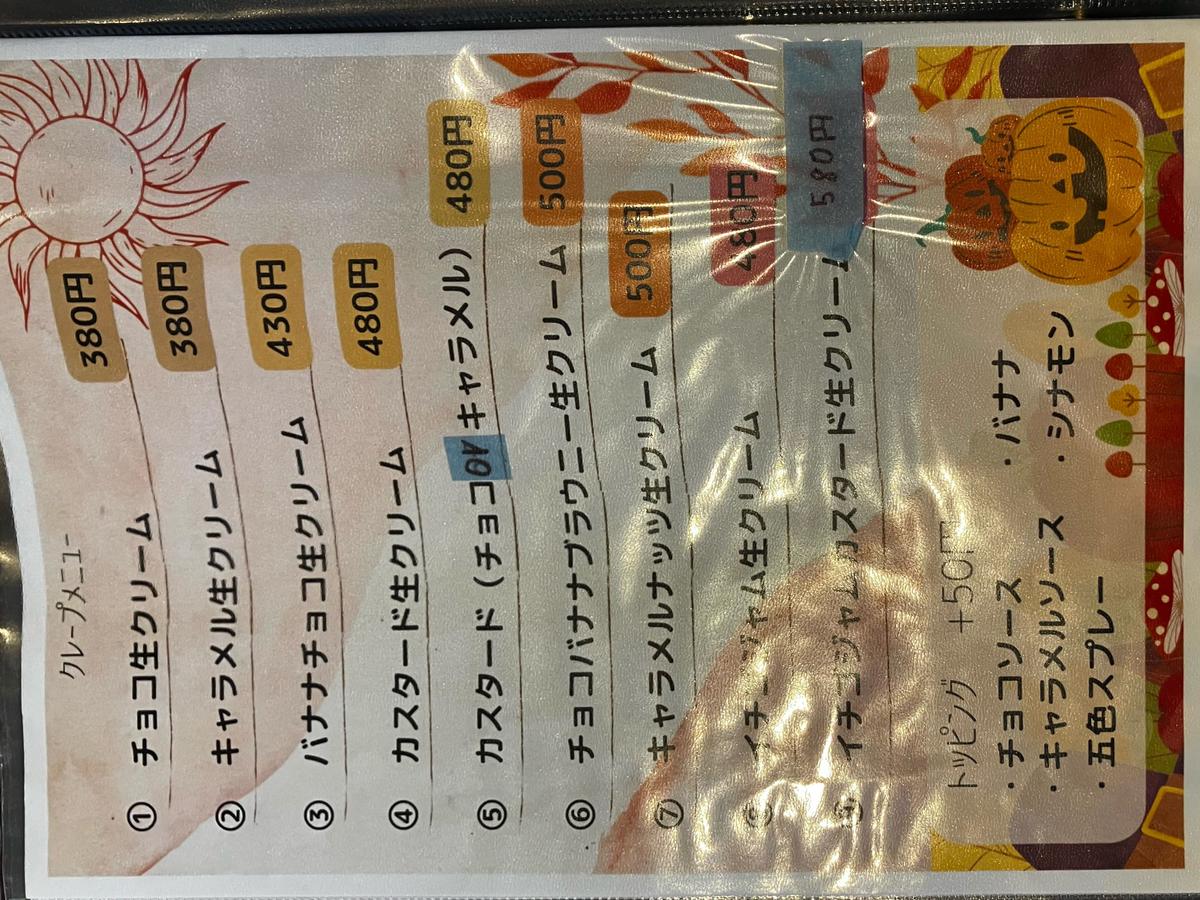 クレープメニュー
① チョコ生クリーム 380円
② キャラメル生クリーム 380円
③ バナナチョコ生クリーム 430円
④ カスタード生クリーム 480円
⑤ カスタード（チョコorキャラメル） 480円
⑥ チョコバナナブラウニー生クリーム 500円
⑦ キャラメルナッツ生クリーム 500円
⑧ イチゴジャム生クリーム 480円
⑨ イチゴジャムカスタード生クリーム 580円
トッピング +50円
・チョコソース ・バナナ
・キャラメルソース ・シナモン
・五色スプレー